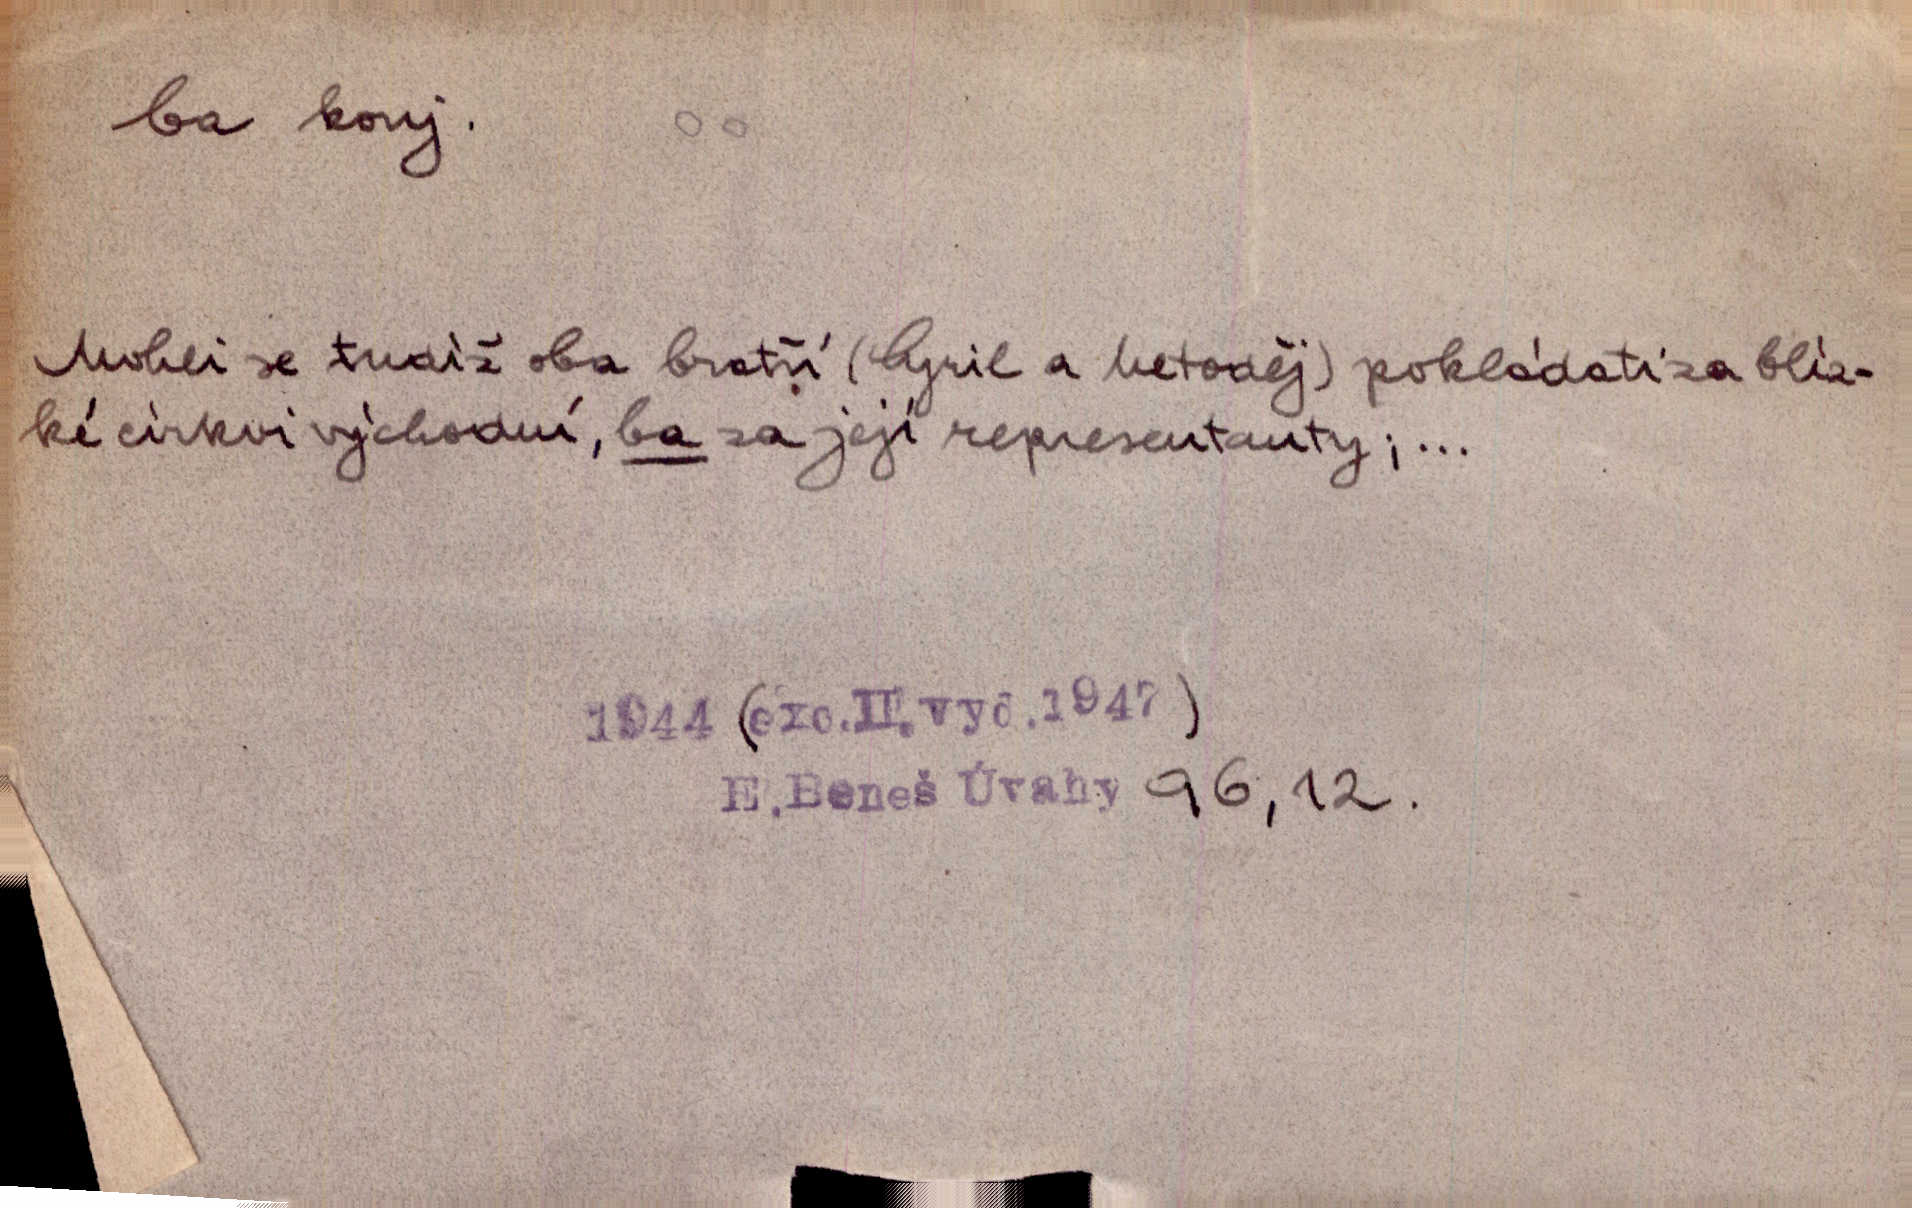 ba konj.
Mohli se tudíž oba bratří (Cyril a Metoděj) pokládati za blíz-
ké církvi východní, ba za její representanty; ...
1944 (exc.II.vyd.1947)
E.Beneš Úvahy 96,12.